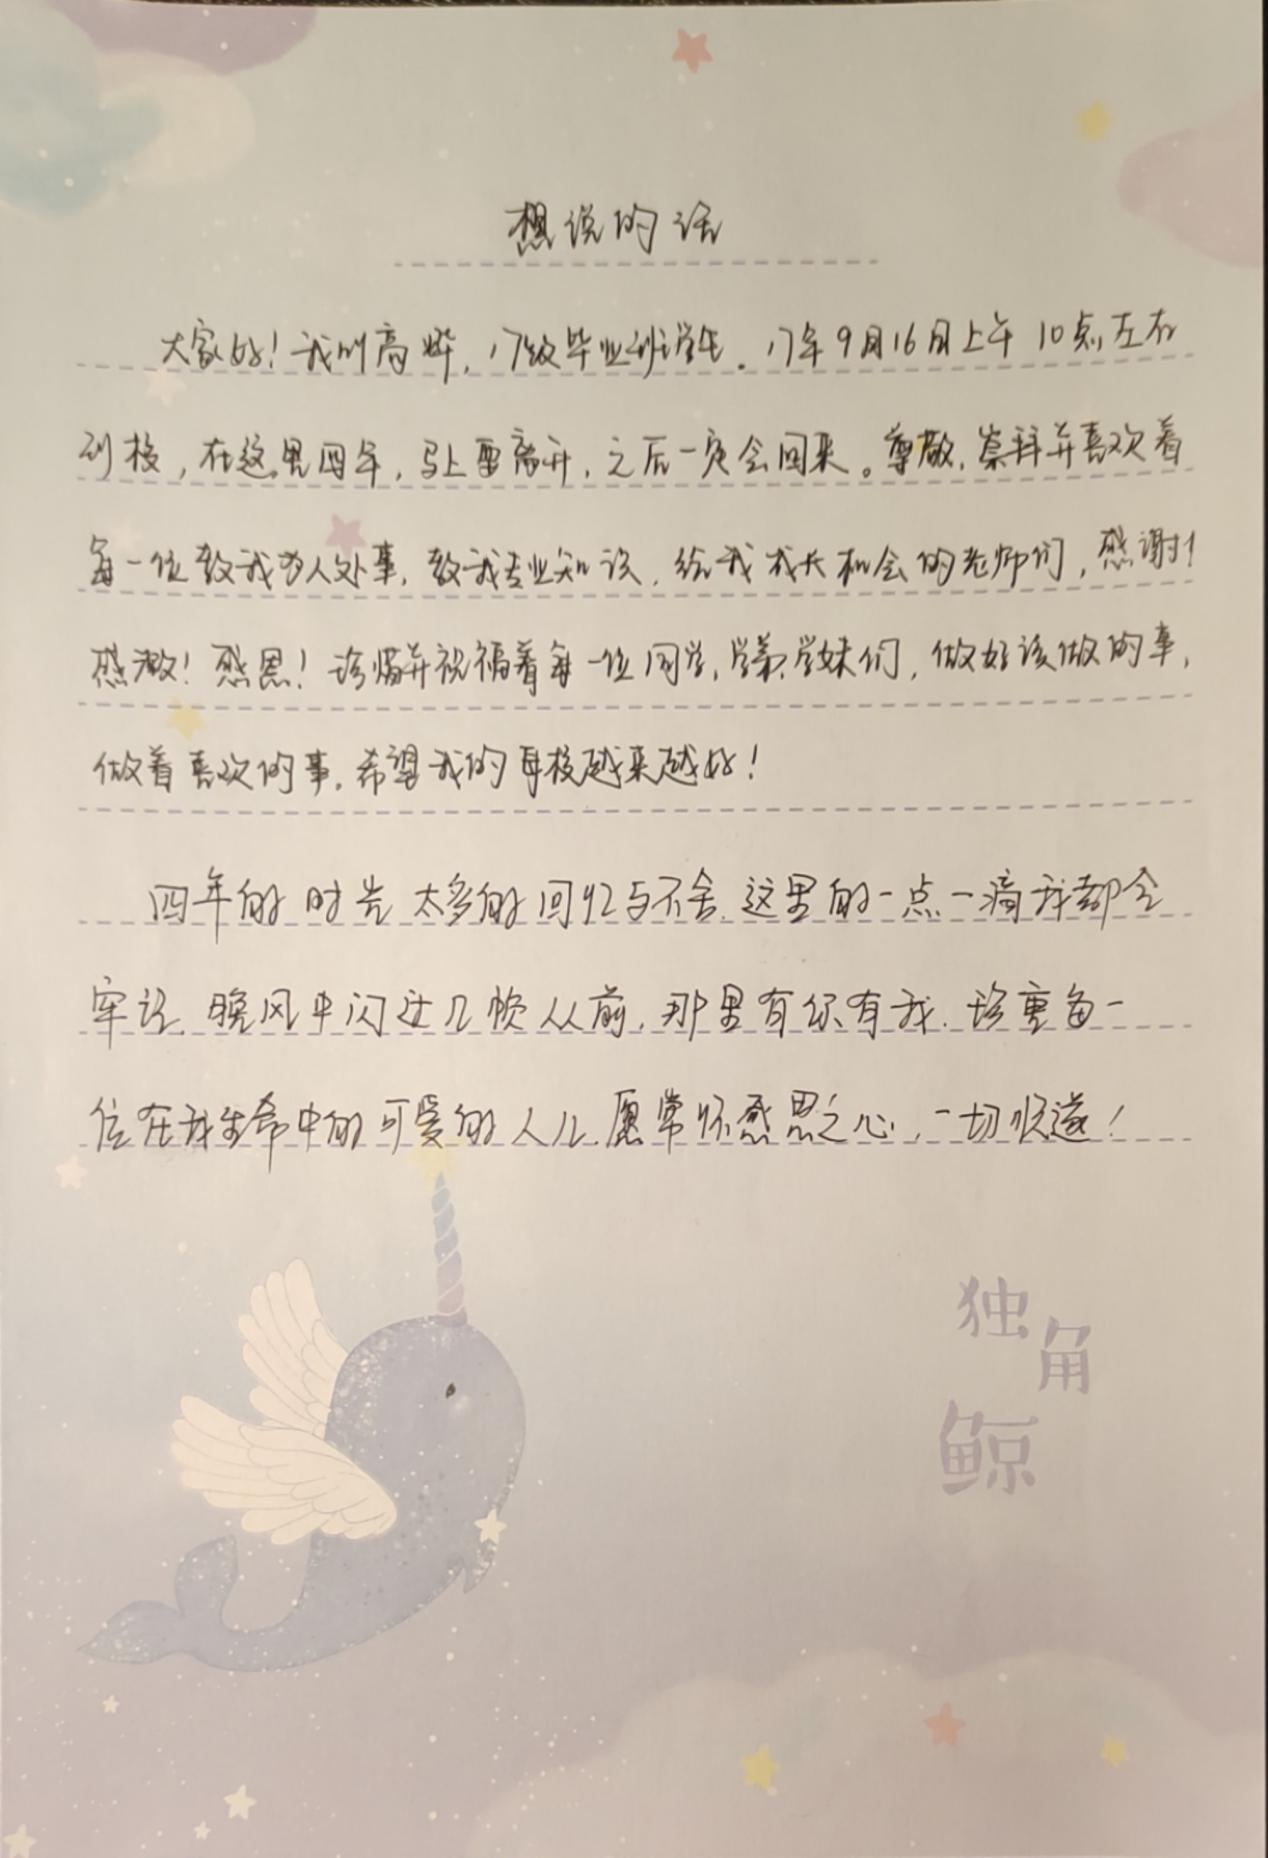 想说的话
大家好！我叫高烨，17级毕业班学生。17年9月16日上午10点左右
到校，在这里四年，马上要离开，之后一定会回来。尊敬，崇拜并喜欢着
每一位教我为人处事，教我专业知识，给我成长机会的老师们，感谢！
感激！感恩！珍惜并祝福着每一位同学，学弟学妹们，做好该做的事，
做着喜欢的事，希望我的母校越来越好！
四年的时光 太多的回忆与不舍，这里的一点一滴我都会
牢记，晚风中闪过几帧从前，那里有你有我，珍重每一
位在我生命中的可爱的人儿，愿常怀感恩之心，一切顺遂！
独角鲸